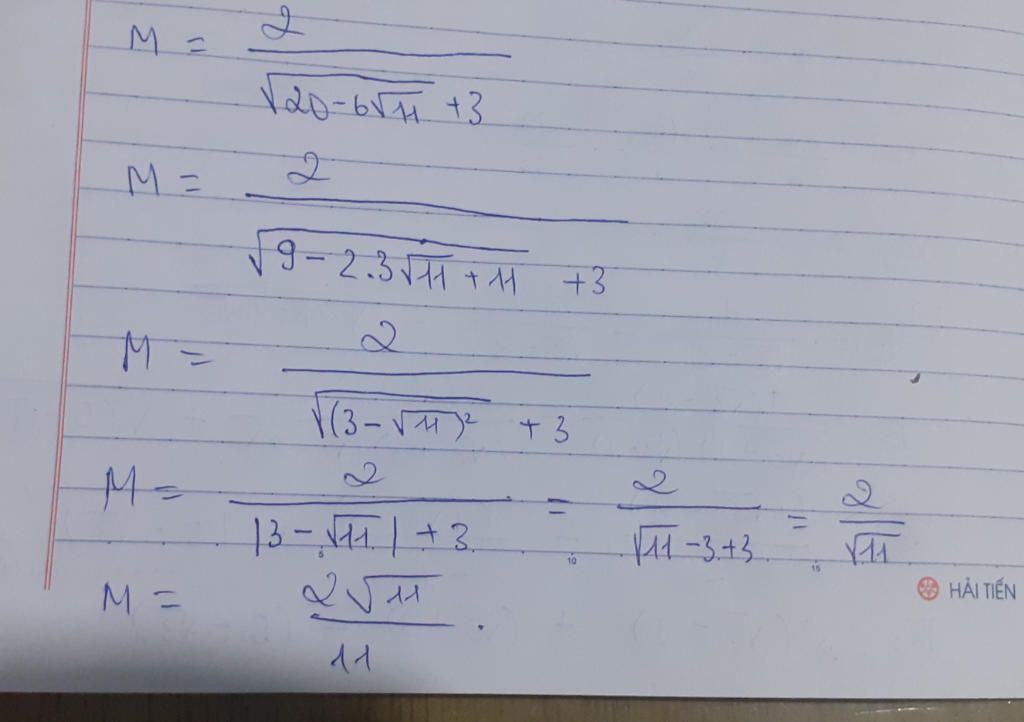 M = 2 / (√(20-6√11) +3)
M = 2 / (√(9-2.3√11+11) +3)
M = 2 / (√((3-√11)²) +3)
M = 2 / (|3-√11| +3) = 2 / (√11-3+3) = 2 / √11
5 10 15
HẢI TIẾN
M = 2√11 / 11.